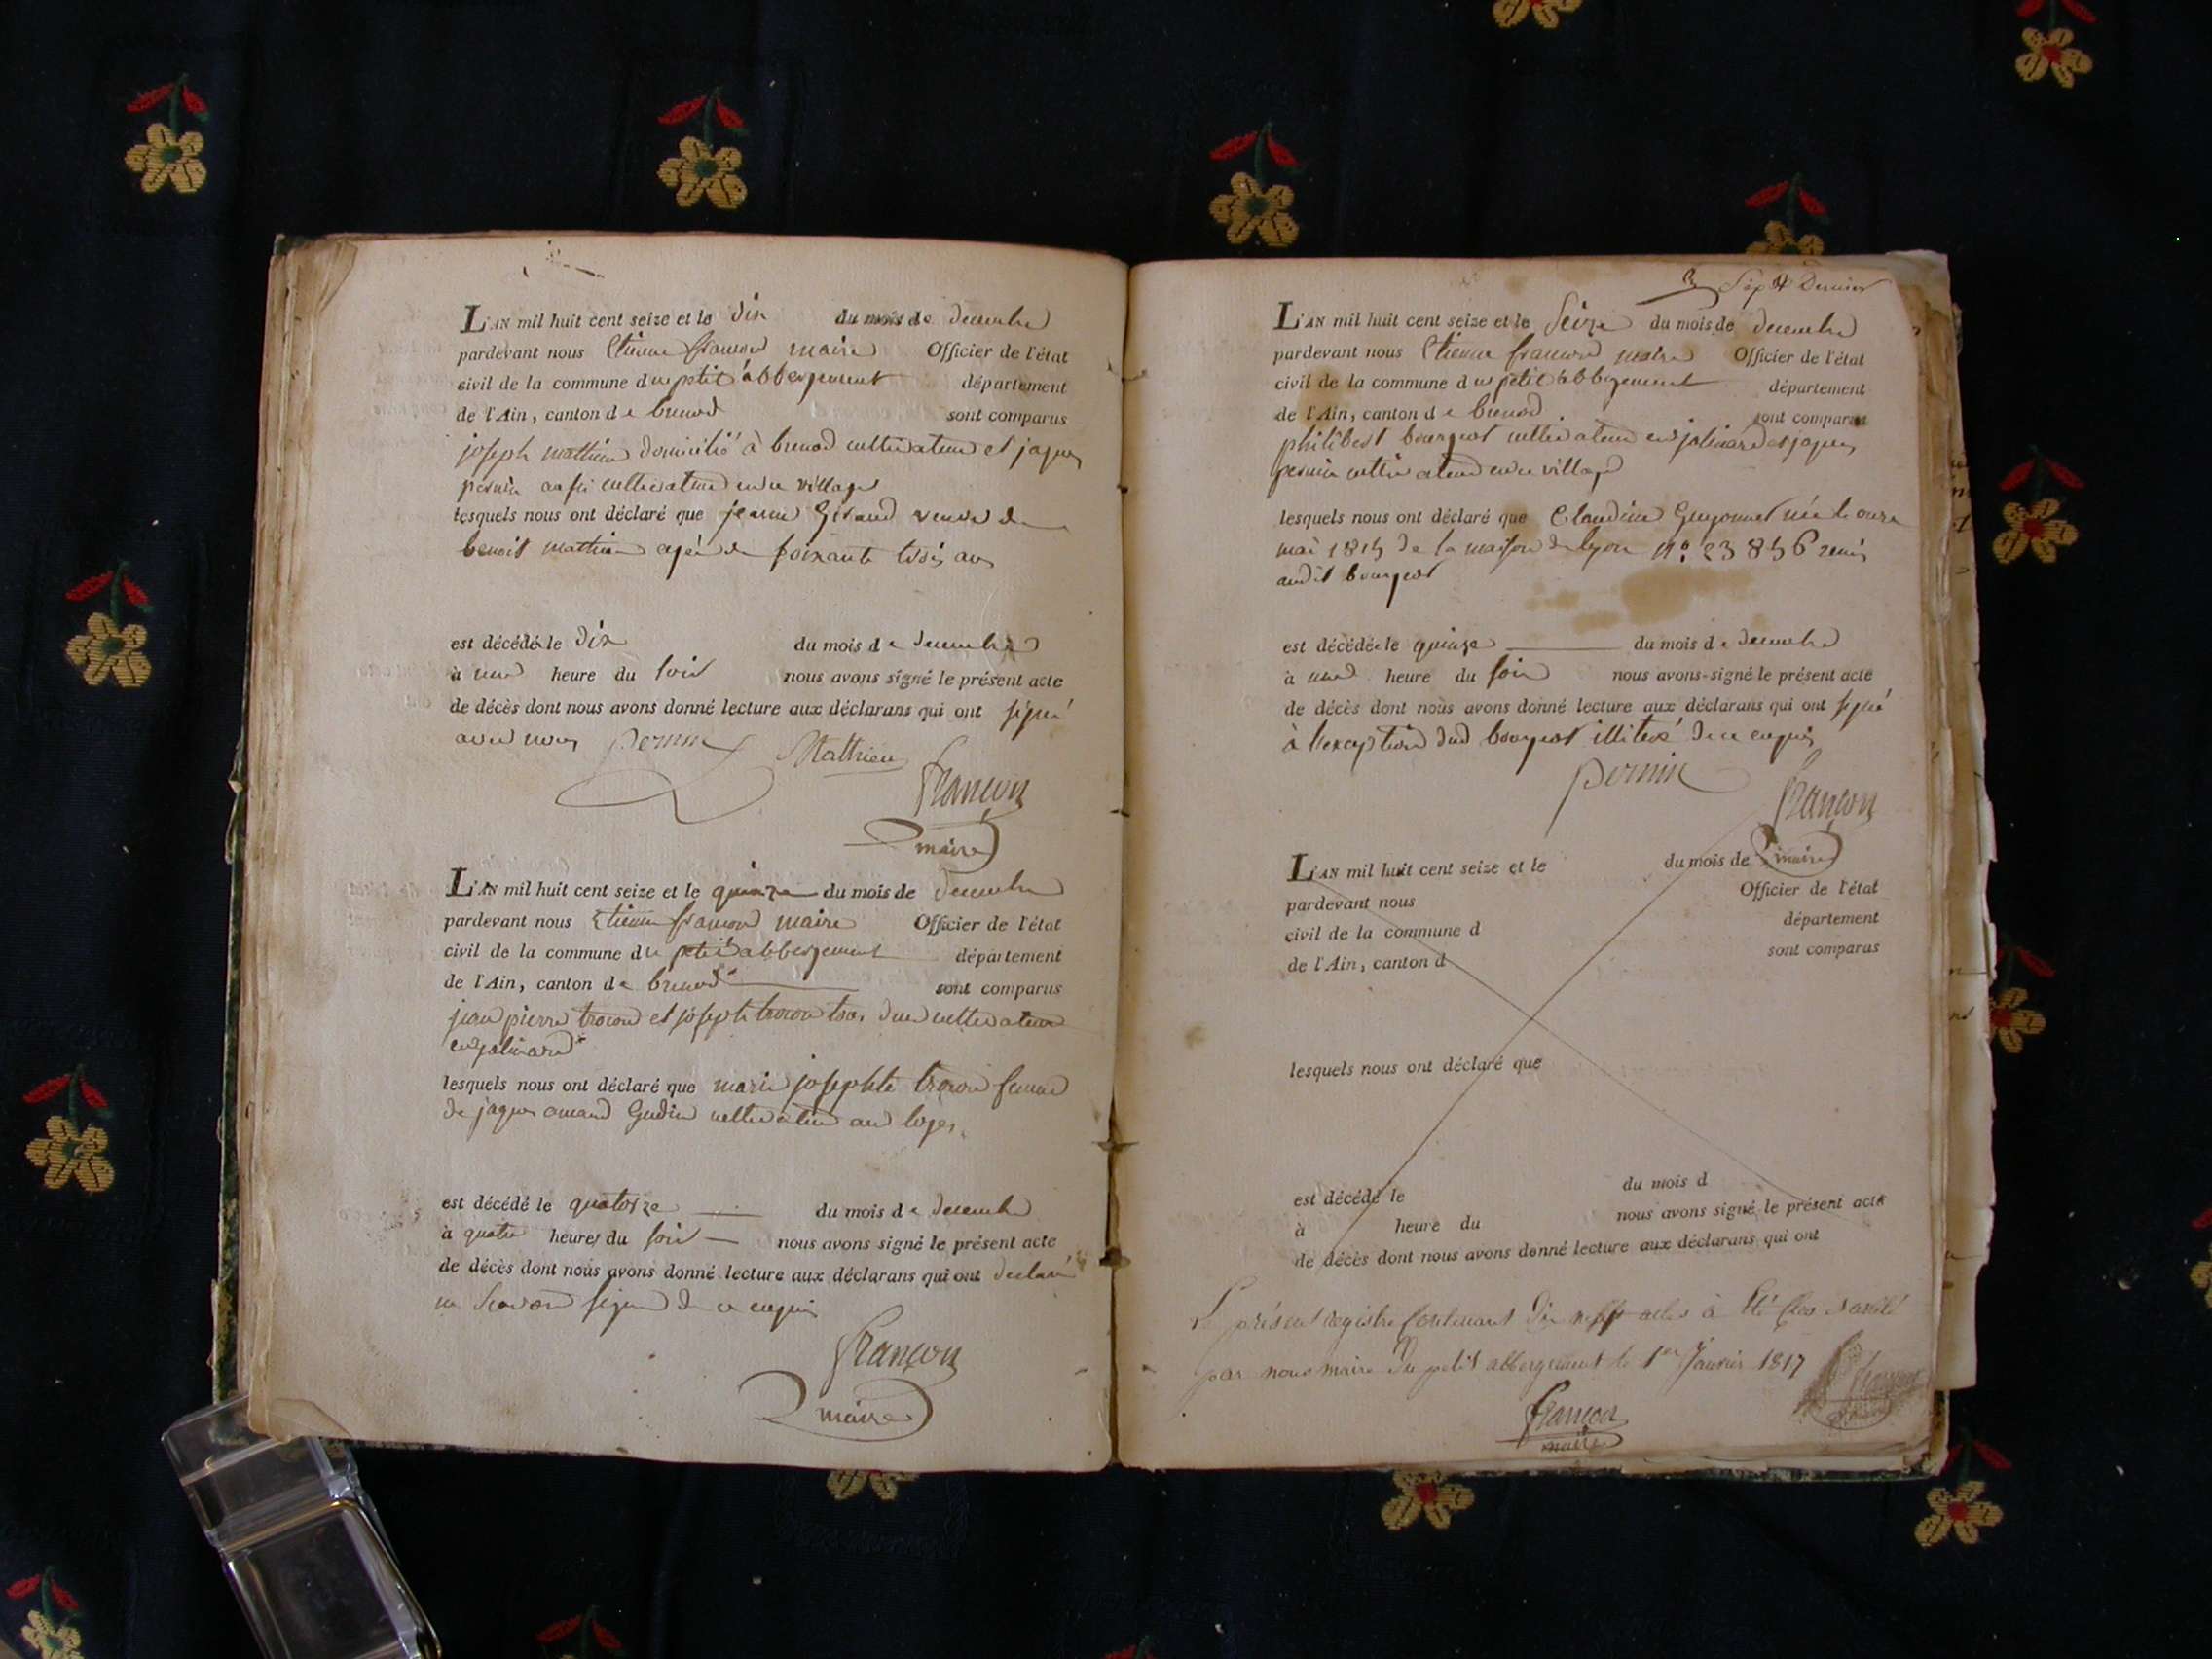 L'AN mil huit cent seize et le dix du mois de decembre
pardevant nous Etienne françon maire Officier de l'état
civil de la commune du petit abbergement département
de l'Ain, canton de brenod sont comparus
joseph mathieu domicilié à brenod cultivateur et jaques
pernin aussi cultivateur en ce village
lesquels nous ont déclaré que jeanne Giraud veuve de
benoit mathieu agée de soixante trois ans
est décédé le dix du mois de decembre
à une heure du soir nous avons signé le présent acte
de décès dont nous avons donné lecture aux déclarans qui ont signé
avec nous pernin Mathieu
françon
maire
L'AN mil huit cent seize et le quinze du mois de decembre
pardevant nous Etienne françon maire Officier de l'état
civil de la commune du petit abbergement département
de l'Ain, canton de brenod sont comparus
jean pierre trocon et joseph trocon tous deux cultivateur
en jalinard
lesquels nous ont déclaré que marie josephte trocon femme
de jaques amand Gudin cultivateur aux loges
est décédé le quatorze du mois de decembre
à quatre heures du soir nous avons signé le présent acte
de décès dont nous avons donné lecture aux déclarans qui ont declaré
ne savoir signer de ce enquis
françon
maire
Sept Dernier
L'AN mil huit cent seize et le seize du mois de decembre
pardevant nous Etienne françon maire Officier de l'état
civil de la commune du petit abbergement département
de l'Ain, canton de brenod sont comparus
philibert bourgeot cultivateur en jalinard et jaques
pernin cultivateur en ce village
lesquels nous ont déclaré que Claudine Guyonnet née le onze
mai 1815 de la maison de lyon n° 23856 remis
audit bourgeot
est décédé le quinze du mois de decembre
à une heure du soir nous avons signé le présent acte
de décès dont nous avons donné lecture aux déclarans qui ont signé
à l'exception dud bourgeot illiteré de ce enquis
pernin
françon
maire
L'AN mil huit cent seize et le du mois de
pardevant nous Officier de l'état
civil de la commune d département
de l'Ain, canton d sont comparus
lesquels nous ont déclaré que
est décédé le du mois d
à heure du nous avons signé le présent acte
de décès dont nous avons donné lecture aux déclarans qui ont
Le présent registre contenant dix neuf actes à été clos et arrêté
par nous maire du petit abbergement le 1er Janvier 1817
françon
maire